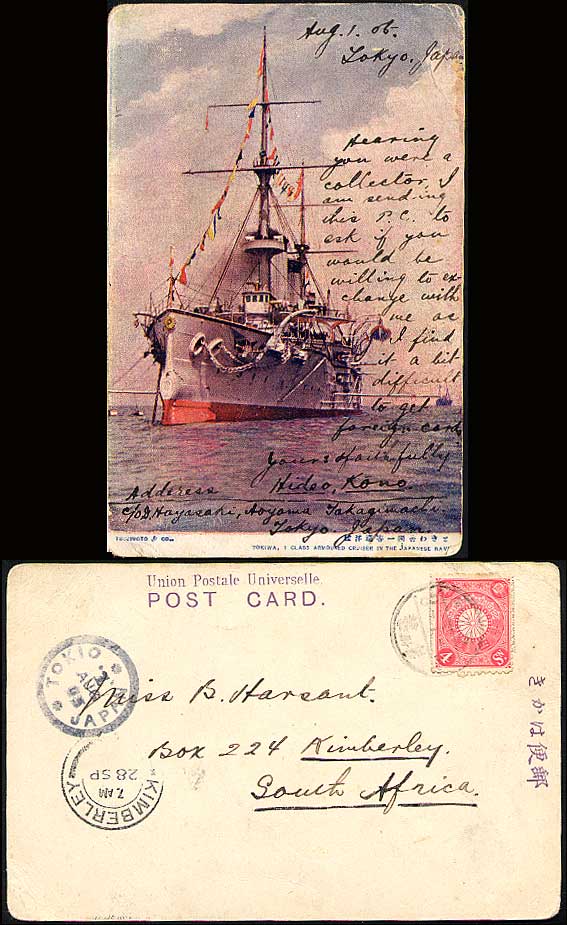 Aug. 1. 06.
Tokyo, Japan
Hearing
you were a
collector, I
am sending
this P.C. to
ask if you
would be
willing to ex-
change with
me as
I find
it a bit
difficult
to get
foreign card
Yours faithfully
Address Hideo, Kono.
c/o S. Hayasaki, Aoyama Takagimachi
Tokyo Japan
& Co.
TOKIWA, 1 CLASS ARMOURED CRUISER IN THE JAPANESE NAVY
Union Postale Universelle.
POST CARD.
4 Sn
TOKIO
AUG
JAPAN
Miss B. Harsant.
Box 224 Kimberley.
South Africa.
KIMBERLEY
7 AM
28 SP
きかは便郵